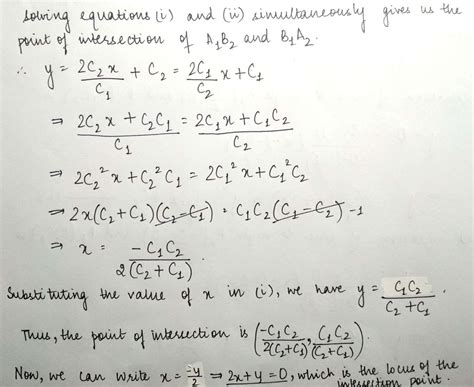 solving equations (i) and (ii) simultaneously gives us the
point of intersection of A₁B₂ and B₁A₂.
∴ y = 2C₂x/C₁ + C₂ = 2C₁x/C₂ + C₁
⇒ (2C₂x + C₂C₁)/C₁ = (2C₁x + C₁C₂)/C₂
⇒ 2C₂²x + C₂²C₁ = 2C₁²x + C₁²C₂
⇒ 2x(C₂ + C₁)(C₂ - C₁) = C₁C₂(C₁ - C₂) -1
⇒ x = -C₁C₂/2(C₂ + C₁).
Substituting the value of x in (i), we have y = C₁C₂/C₂ + C₁.
Thus, the point of intersection is (-C₁C₂/2(C₂+C₁), C₁C₂/(C₂+C₁)).
Now, we can write x = -y/2 ⇒ 2x + y = 0, which is the locus of the
intersection point.